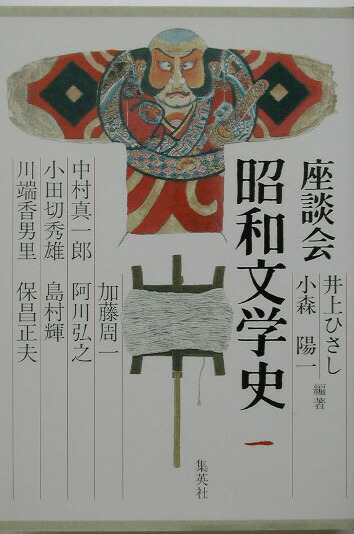 座談会
昭和文学史 一
井上ひさし
小森 陽一
編著
加藤周一
中村真一郎 阿川弘之
小田切秀雄 島村輝
川端香男里 保昌正夫
集英社